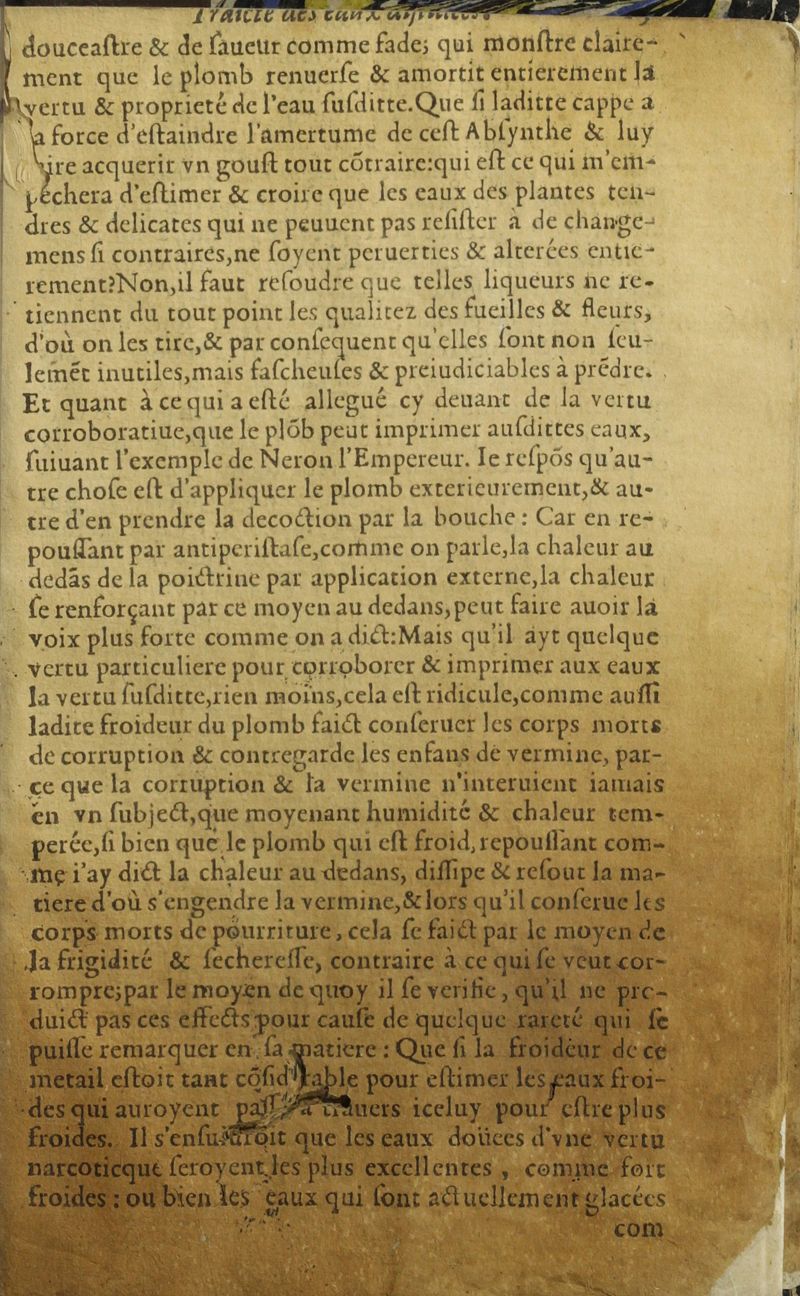 Traicté des eaux
douceaſtre & de ſaueur comme fade; qui monſtre claire-
ment que le plomb renuerſe & amortit entierement la
vertu & proprieté de l'eau ſuſditte.Que ſi laditte cappe a
la force d'eſtaindre l'amertume de ceſt Abſynthe & luy
faire acquerir vn gouſt tout cõtraire:qui eſt ce qui m'em-
peſchera d'eſtimer & croire que les eaux des plantes ten-
dres & delicates qui ne peuuent pas reſiſter à de change-
mens ſi contraires,ne ſoyent peruerties & alterées entie-
rement?Non,il faut reſoudre que telles liqueurs ne re-
tiennent du tout point les qualitez des fueilles & fleurs,
d'où on les tire,& par conſequent qu'elles ſont non ſeu-
lemẽt inutiles,mais faſcheuſes & preiudiciables à prẽdre.
Et quant à ce qui a eſté allegué cy deuant de la vertu
corroboratiue,que le plõb peut imprimer auſdittes eaux,
ſuiuant l'exemple de Neron l'Empereur. Ie reſpõs qu'au-
tre choſe eſt d'appliquer le plomb exterieurement,& au-
tre d'en prendre la decoction par la bouche : Car en re-
pouſſant par antiperiſtaſe,comme on parle,la chaleur au
dedãs de la poictrine par application externe,la chaleur
ſe renforçant par ce moyen au dedans,peut faire auoir la
voix plus forte comme on a dict:Mais qu'il ayt quelque
vertu particuliere pour corroborer & imprimer aux eaux
la vertu ſuſditte,rien moins,cela eſt ridicule,comme auſſi
ladite froideur du plomb faict conſeruer les corps morts
de corruption & contregarde les enfans de vermine, par-
ce que la corruption & la vermine n'interuient iamais
en vn ſubject,que moyenant humidité & chaleur tem-
perée,ſi bien que le plomb qui eſt froid,repouſſant com-
me i'ay dict la chaleur au dedans, diſſipe & reſout la ma-
tiere d'où s'engendre la vermine,& lors qu'il conſerue les
corps morts de pourriture, cela ſe faict par le moyen de
la frigidité & ſechereſſe, contraire à ce qui ſe veut cor-
rompre;par le moyen de quoy il ſe verifie, qu'il ne pro-
duict pas ces effects pour cauſe de quelque rareté qui ſe
puiſſe remarquer en ſa matiere : Que ſi la froideur de ce
metail eſtoit tant cõſiderable pour eſtimer les eaux froi-
des qui auroyent paſſé à trauers iceluy pour eſtre plus
froides. Il s'enſuiuroit que les eaux doüees d'vne vertu
narcoticque ſeroyent les plus excellentes , comme fort
froides : ou bien les eaux qui ſont actuellement glacées
com